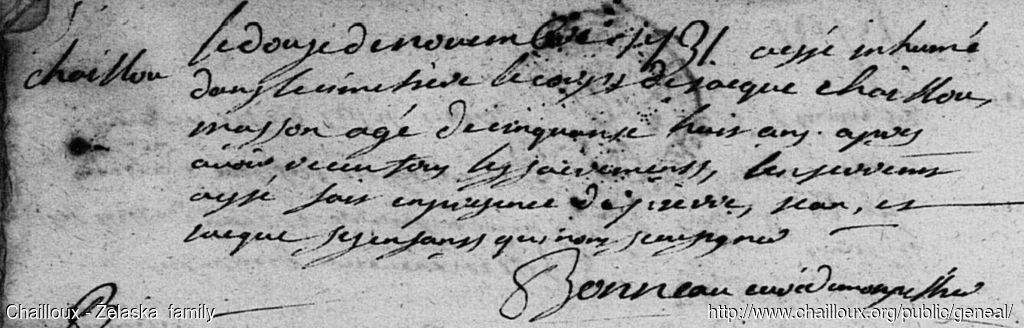 Chaillou
le douze de novembre 1731 a esté inhumé
dans le cimetiere le corps de jacque chaillou
masson agé de cinquante huit ans apres
avoir receu tous les sacrements, l'enterrement
a esté fait en presence de pierre, jean, et
jacque ses enfans qui n'ont sceu signer
Bonneau curé de
Chailloux - Zelaska family
http://www.chailloux.org/public/geneal/